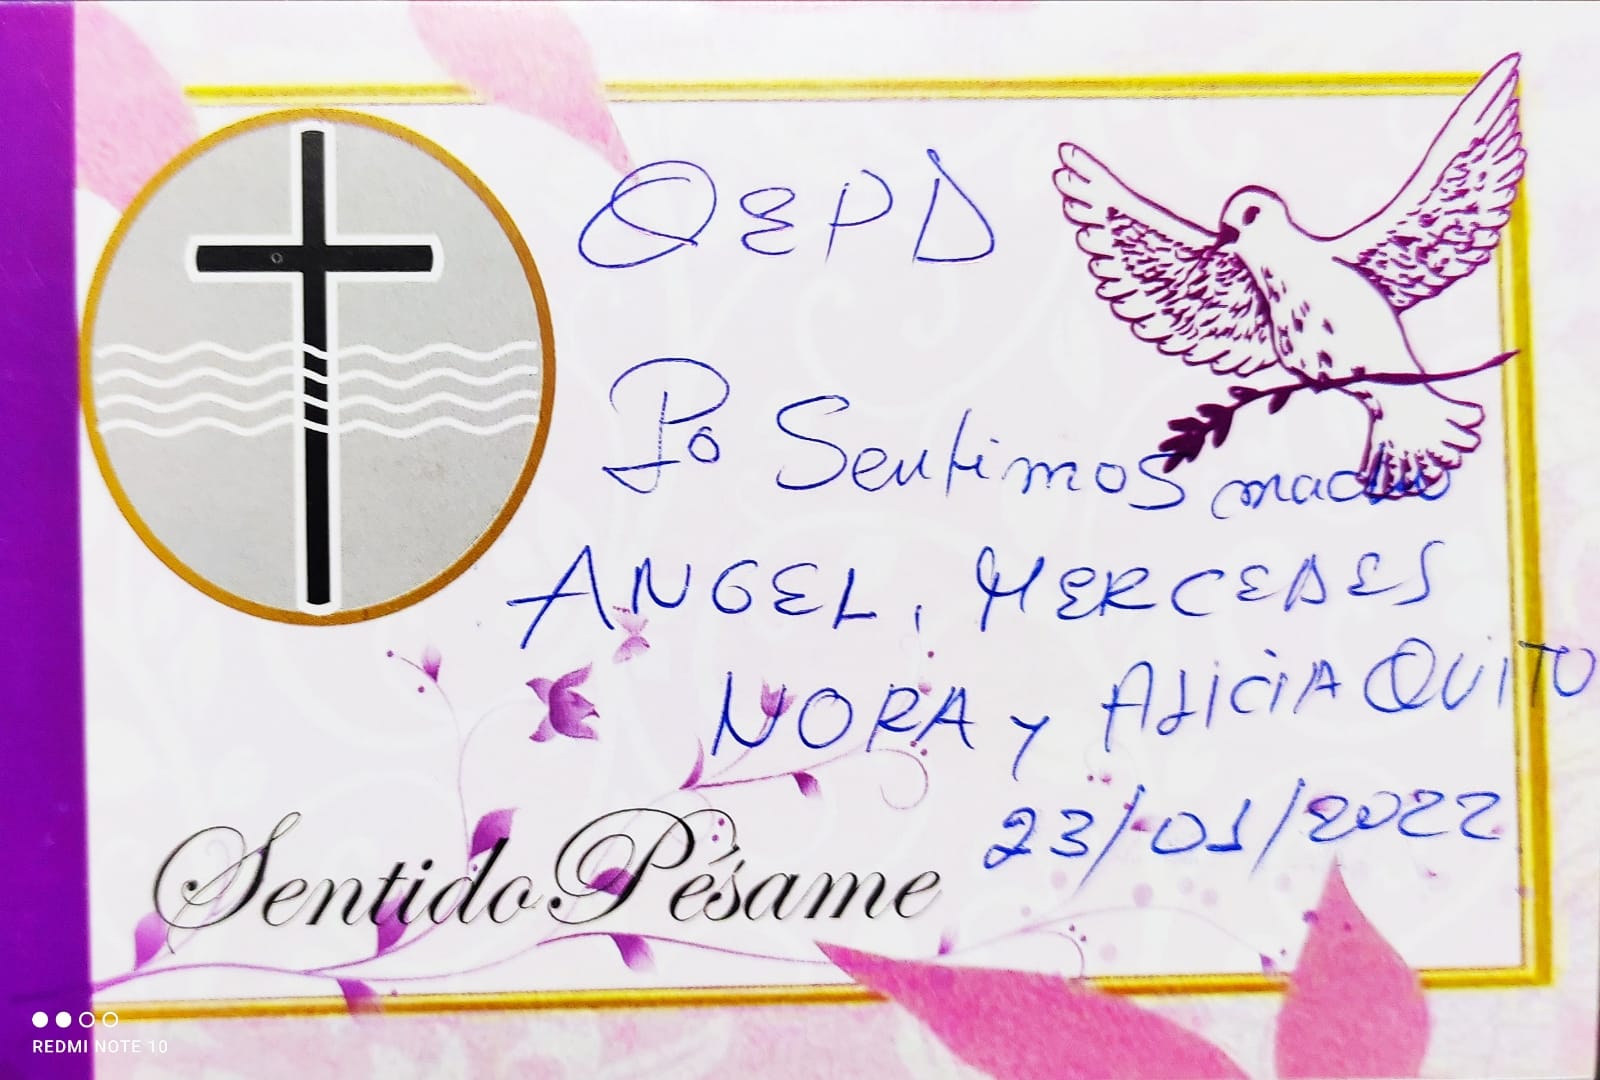 QEPD
Lo Sentimos mucho
ANGEL, MERCEDES
NORA y ALICIA QUITO
23/01/2022
Sentido Pésame
REDMI NOTE 10